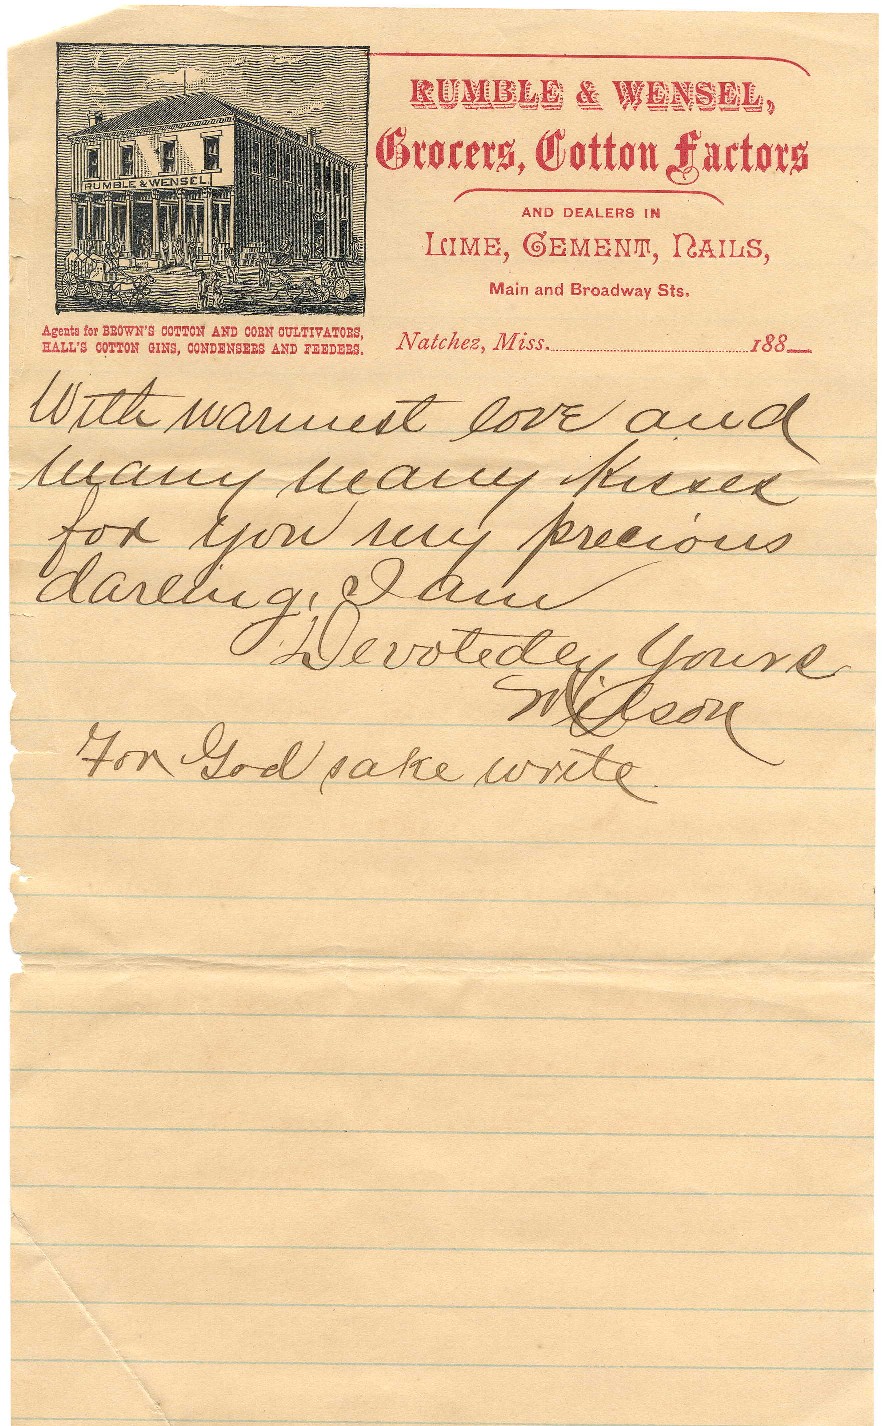 RUMBLE & WENSEL
RUMBLE & WENSEL,
Grocers, Cotton Factors
AND DEALERS IN
LIME, CEMENT, NAILS,
Main and Broadway Sts.
Agents for BROWN'S COTTON AND CORN CULTIVATORS,
HALL'S COTTON GINS, CONDENSERS AND FEEDERS.
Natchez, Miss. 188
With warmest love and
many many kisses
for you my precious
darling, I am
Devotedly Yours
Wilson
For God sake write